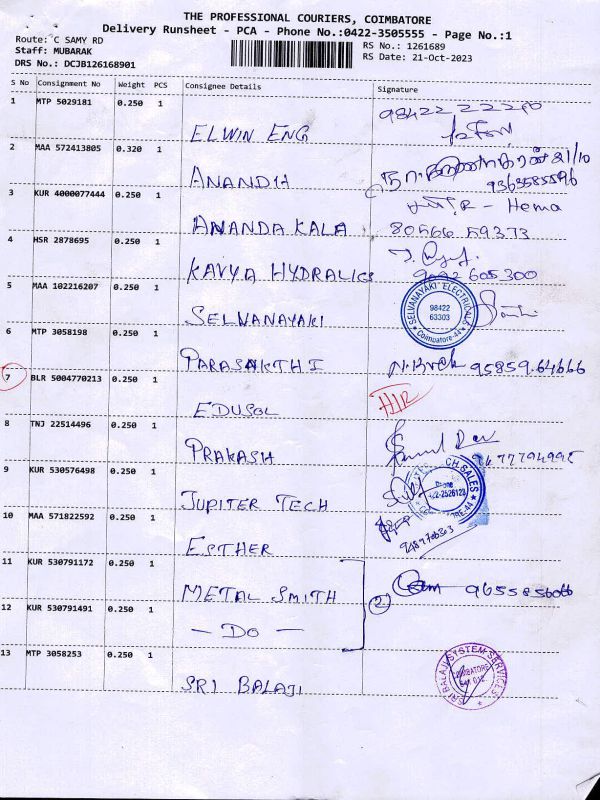 THE PROFESSIONAL COURIERS, COIMBATORE
Delivery Runsheet - PCA - Phone No.:0422-3505555 - Page No.:1
Route: C SAMY RD
Staff: MUBARAK
DRS No.: DCJB126168901
RS No.: 1261689
RS Date: 21-Oct-2023
S No Consignment No Weight PCS Consignee Details Signature
1 MTP 5029181 0.250 1 ELWIN ENG 98422 22220
2 MAA 572413805 0.320 1 ANANDH 21/10
9363585596
3 KUR 4000077444 0.250 1 ANANDA KALA - Hema
80566 59373
4 HSR 2878695 0.250 1 KAVYA HYDRALICS
9092 605300
5 MAA 102216207 0.250 1 SELVANAYAKI SELVANAYAKI ELECTRICALS
98422
63303
Coimbatore-44
6 MTP 3058198 0.250 1 PARASAKTHI 95859.64666
7 BLR 5004770213 0.250 1 EDUSOL
8 TNJ 22514496 0.250 1 PRAKASH
9 KUR 530576498 0.250 1 JUPITER TECH CH SALES
Phone
22-2526123
10 MAA 571822592 0.250 1 ESTHER
11 KUR 530791172 0.250 1 METAL SMITH 2 9655856066
12 KUR 530791491 0.250 1 - DO -
13 MTP 3058253 0.250 1 SRI BALAJI SRI BALAJI SYSTEM SERVICES
COIMBATORE
641 012